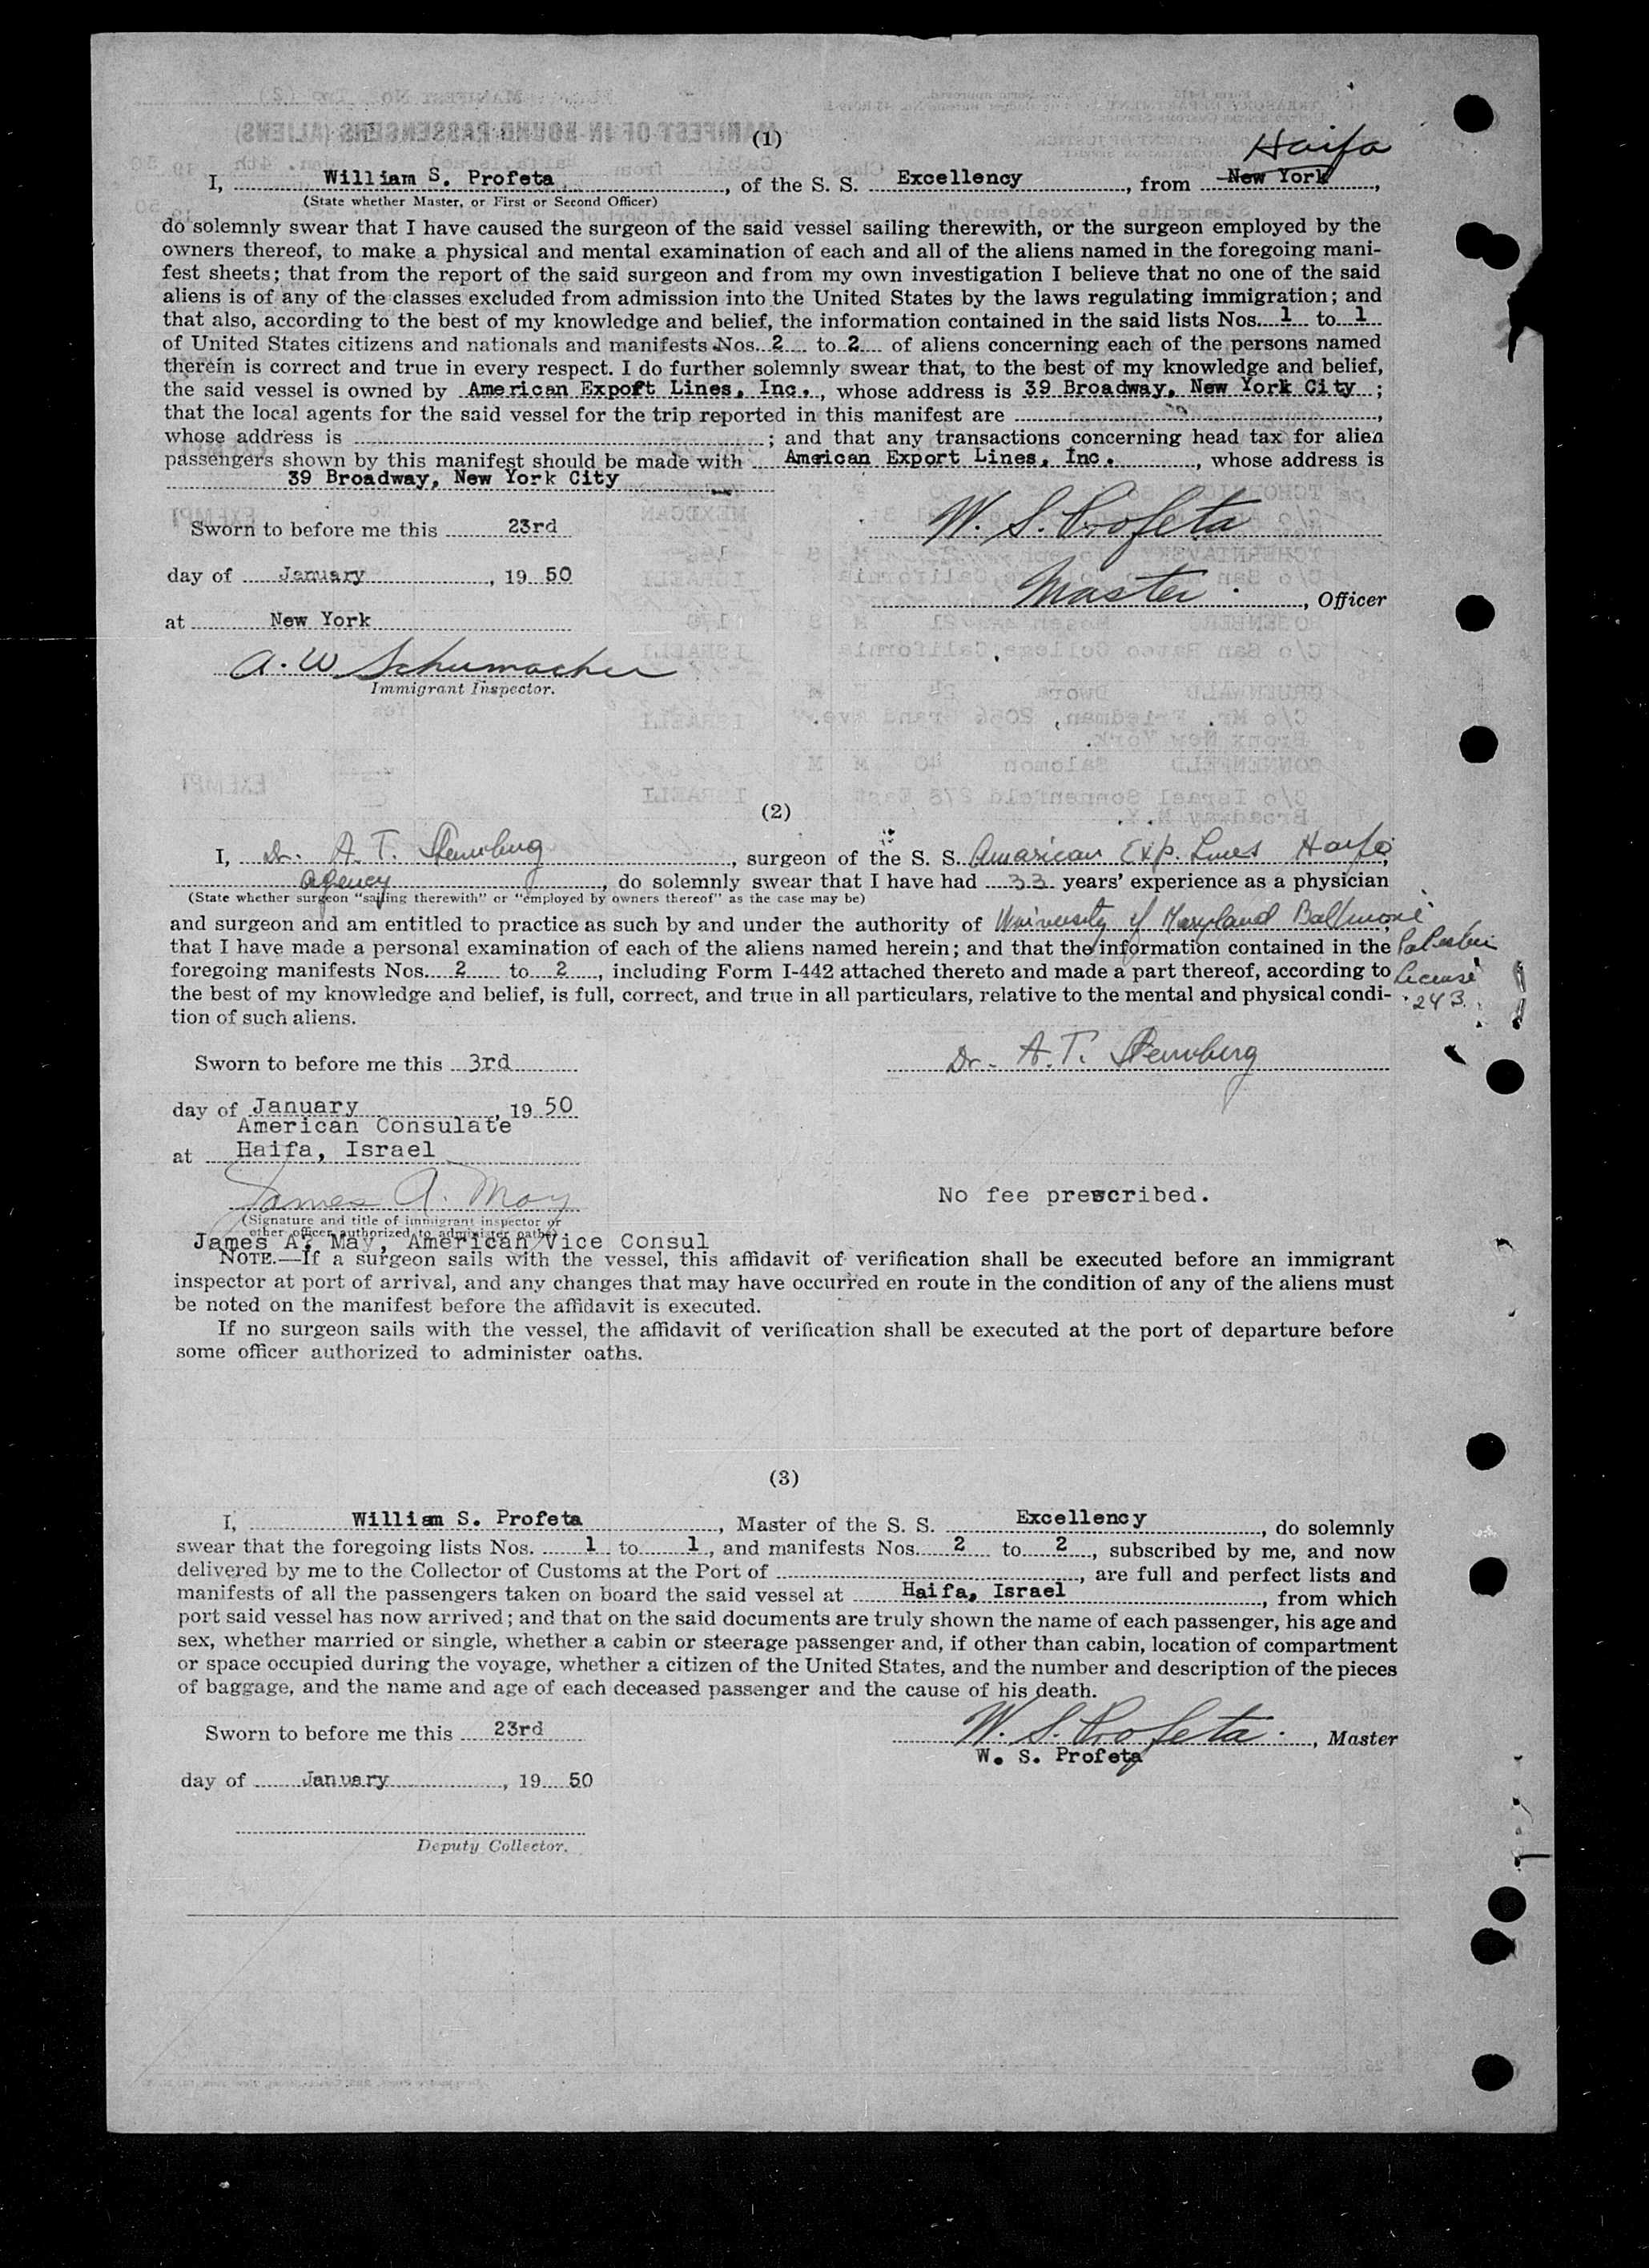 (1)
Haifa
I, William S. Profeta, of the S. S. Excellency, from New York,
(State whether Master, or First or Second Officer)
do solemnly swear that I have caused the surgeon of the said vessel sailing therewith, or the surgeon employed by the
owners thereof, to make a physical and mental examination of each and all of the aliens named in the foregoing mani-
fest sheets; that from the report of the said surgeon and from my own investigation I believe that no one of the said
aliens is of any of the classes excluded from admission into the United States by the laws regulating immigration; and
that also, according to the best of my knowledge and belief, the information contained in the said lists Nos. 1 to 1
of United States citizens and nationals and manifests Nos. 2 to 2 of aliens concerning each of the persons named
therein is correct and true in every respect. I do further solemnly swear that, to the best of my knowledge and belief,
the said vessel is owned by American Export Lines, Inc., whose address is 39 Broadway, New York City;
that the local agents for the said vessel for the trip reported in this manifest are ,
whose address is ; and that any transactions concerning head tax for alien
passengers shown by this manifest should be made with American Export Lines, Inc., whose address is
39 Broadway, New York City
Sworn to before me this 23rd
W. S. Profeta
day of January, 19 50
Master, Officer
at New York
A. W Schumacher
Immigrant Inspector.
(2)
I, Dr. A. T. Sternberg, surgeon of the S. S. American Exp. Lines Haifa,
agency, do solemnly swear that I have had 33 years' experience as a physician
(State whether surgeon "sailing therewith" or "employed by owners thereof" as the case may be)
and surgeon and am entitled to practice as such by and under the authority of University of Maryland Baltimore
that I have made a personal examination of each of the aliens named herein; and that the information contained in the Palestine
foregoing manifests Nos. 2 to 2, including Form I-442 attached thereto and made a part thereof, according to License
the best of my knowledge and belief, is full, correct, and true in all particulars, relative to the mental and physical condi- 243.
tion of such aliens.
Sworn to before me this 3rd
Dr. A. T. Sternberg
day of January, 19 50
American Consulate
at Haifa, Israel
James A. May
No fee prescribed.
(Signature and title of immigrant inspector or
other officer authorized to administer oaths)
James A. May, American Vice Consul
NOTE.—If a surgeon sails with the vessel, this affidavit of verification shall be executed before an immigrant
inspector at port of arrival, and any changes that may have occurred en route in the condition of any of the aliens must
be noted on the manifest before the affidavit is executed.
If no surgeon sails with the vessel, the affidavit of verification shall be executed at the port of departure before
some officer authorized to administer oaths.
(3)
I, William S. Profeta, Master of the S. S. Excellency, do solemnly
swear that the foregoing lists Nos. 1 to 1, and manifests Nos. 2 to 2, subscribed by me, and now
delivered by me to the Collector of Customs at the Port of , are full and perfect lists and
manifests of all the passengers taken on board the said vessel at Haifa, Israel, from which
port said vessel has now arrived; and that on the said documents are truly shown the name of each passenger, his age and
sex, whether married or single, whether a cabin or steerage passenger and, if other than cabin, location of compartment
or space occupied during the voyage, whether a citizen of the United States, and the number and description of the pieces
of baggage, and the name and age of each deceased passenger and the cause of his death.
Sworn to before me this 23rd
W. S. Profeta, Master
W. S. Profeta
day of January, 19 50
Deputy Collector.